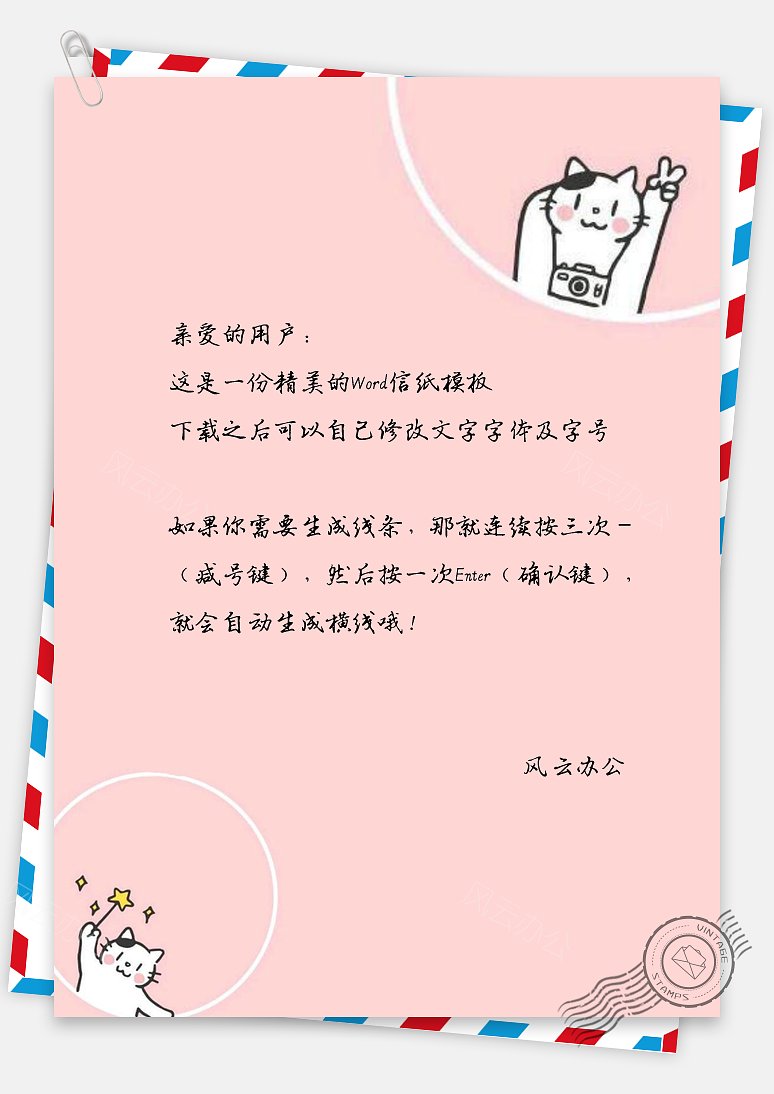 亲爱的用户：
这是一份精美的Word信纸模板
下载之后可以自己修改文字字体及字号
如果你需要生成线条，那就连续按三次－
（减号键），然后按一次Enter（确认键），
就会自动生成横线哦！
风云办公
风云办公
风云办公
风云办公
风云办公
VINTAGE
STAMPS